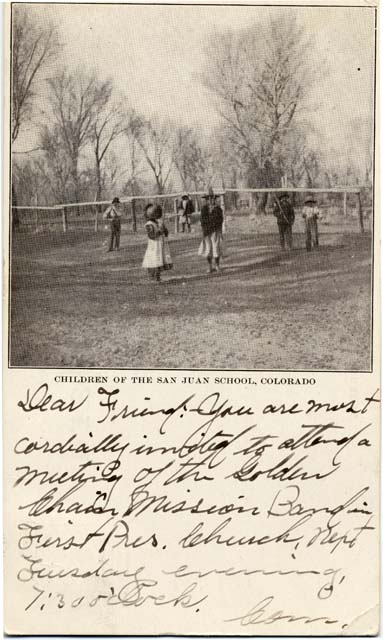 CHILDREN OF THE SAN JUAN SCHOOL, COLORADO
Dear Friend:- You are most
cordially invited to attend a
meeting of the Golden
Chain Mission Band in
First Pres. Church, Next
Tuesday evening,
7:30 o'clock.
Com.